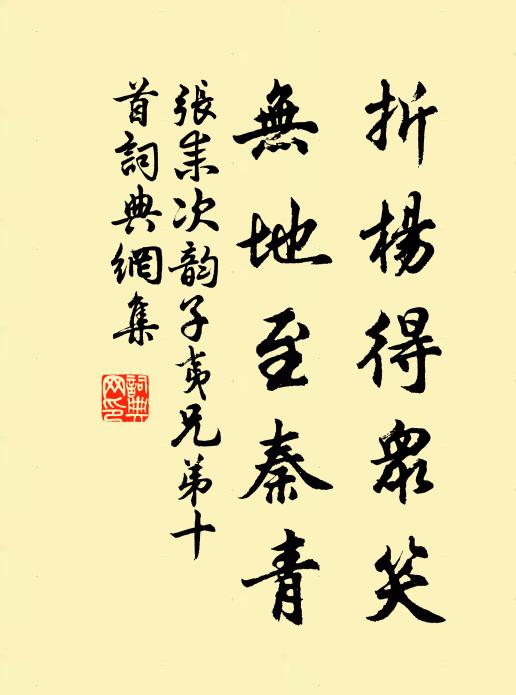 折楊得眾笑
無地至秦青
張耒次韵子夷兄弟十
首詞典網集
詞典網印